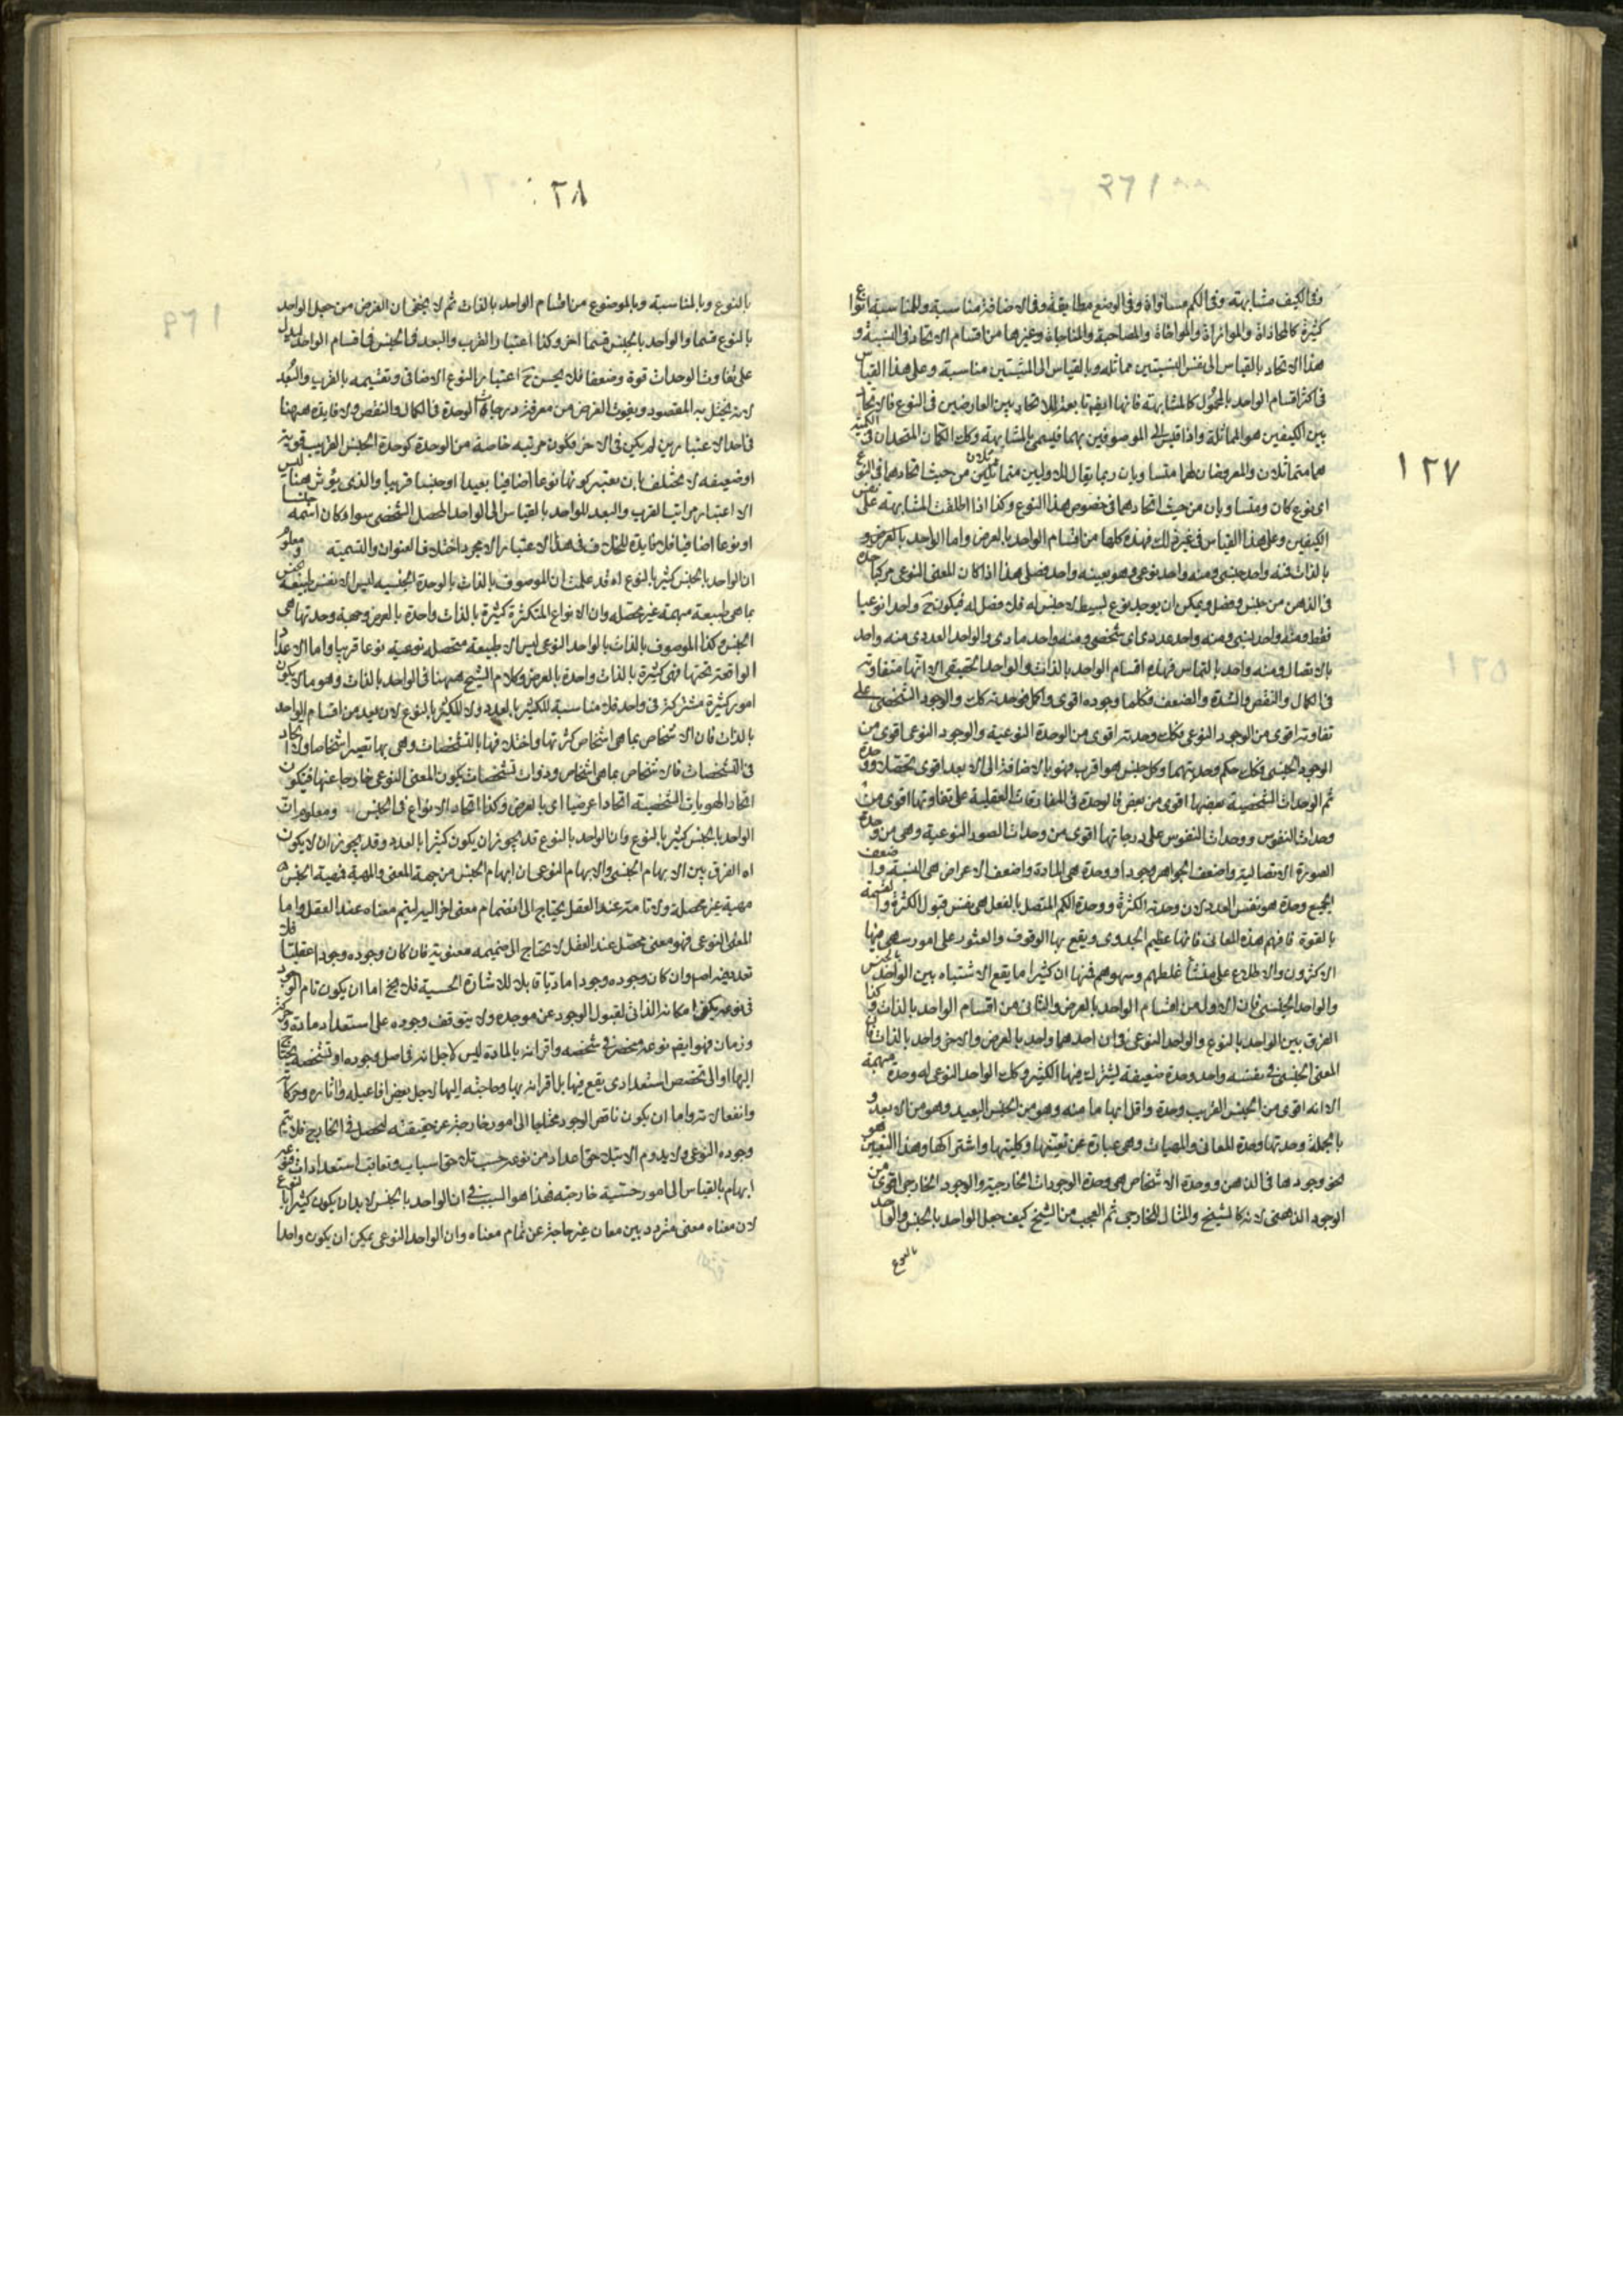 ١٢٧
وفى الكيف مشابهة وفى الكم مساواة وفى الوضع مطابقة وفى الاضافة مناسبة وللمناسبة انواع
كثيرة كالمحاذاة والموازاة والمواخاة والمصاحبة والمناجاة وغيرها من اقسام الاتحاد فى النسبة و
هذا الاتحاد بالقياس الى نفس النسبتين مماثلة وبالقياس الى المنتسبين مناسبة وعلى هذا القياس
فى اكثر اقسام الواحد بالمحمول كالمشابهة فانها ايضا تابعة للاتحاد بين العارضين فى النوع فالاتحاد
بين الكيفين هو المماثلة واذا قيس الى الموصوفين بهما فيسمى بالمشابهة وكك الكمان المتحدان فى الكمية
هما متماثلان والمعروضان لهما متساويان وربما يقال للاولين متماثلين من حيث اتحادهما فى النوع
اى نوع كان ومتساويان من حيث اتحادهما فى خصوص هذا النوع وكذا اذا اطلقت المشابهة على نفس
الكيفين وعلى هذا القياس فى غير ذلك فهذه كلها من اقسام الواحد بالعرض واما الواحد بالعرض و
بالذات فمنه واحد جنسى ومنه واحد نوعى وهو بعينه واحد فصلى هذا اذا كان المعنى النوعى مركبا
فى الذهن من جنس وفصل ويمكن ان يوجد نوع بسيط لا جنس له فلا فصل له فيكون ح واحدا نوعيا
فقط ومنه واحد جنسى ومنه واحد عددى اى شخصى ومنه واحد مادى والواحد العددى منه واحد
بالاتصال ومنه واحد بالتماس فهذه اقسام الواحد بالذات والواحد الحقيقى الا انها متفاوتة
فى الكمال والنقص والشدة والضعف وكلما وجوده اقوى واكمل فوحدته كك والوجود الشخصى على
تفاوته اقوى من الوجود النوعى فكك وحدته اقوى من الوحدة النوعية والوجود النوعى اقوى من
الوجود الجنسى فكك حكم وحدتهما وكل جنس هو اقرب فهو بالاضافة الى الابعد اقوى تحصلا ووحدة
ثم الوحدات الشخصية بعضها اقوى من بعض فالوحدة فى المفارقات العقلية على تفاوتها اقوى من
وحدات النفوس ووحدات النفوس على درجاتها اقوى من وحدات الصور النوعية وهى من وحدة
الصورة الاتصالية واضعف الجواهر وجودا ووحدة هى المادة واضعف الاعراض هى النسبة واضعف
الجميع وحدة هو نفس العدد لان وحدته الكثرة ووحدة الكم المتصل بالفعل هى نفس قبول الكثرة والقسمة
بالقوة فافهم هذه المعانى فانها عظيم الجدوى ويقع بها الوقوف والعثور على امور سهى فيها
الاكثرون والاطلاع على منشأ غلطهم وسهوهم فمنها ان كثيرا ما يقع الاشتباه بين الواحد بالجنس
والواحد الجنسى فان الاول من اقسام الواحد بالعرض والثانى من اقسام الواحد بالذات وكذا
الفرق بين الواحد بالنوع والواحد النوعى فى ان احدهما واحد بالعرض والاخر واحد بالذات فان
المعنى الجنسى فى نفسه واحد وحدة ضعيفة يشترك فيها الكثير وكك الواحد النوعى له وحدة مبهمة
الا انه اقوى من الجنس القريب وحدة واقل ابهاما منه وهو من الجنس البعيد وهو من الابعد و
بالجملة وحدتها وحدة المعانى والمهيات وهى عبارة عن تعينها وكليتها واشتراكها وهذا التعين هو
نحو وجودها فى الذهن ووحدة الاشخاص هى وحدة الوجودات الخارجية والوجود الخارجى اقوى من
الوجود الذهنى لانه كالشبح والمثال للخارجى ثم العجب من الشيخ كيف جعل الواحد بالجنس والواحد
بالنوع
٢٨
بالنوع وبالمناسبة وبالموضوع من اقسام الواحد بالذات ثم لا يخفى ان الغرض من جعل الواحد
بالنوع قسما والواحد بالجنس قسما اخر وكذا اعتبار القرب والبعد فى الجنس فى اقسام الواحد ليدل
على تفاوت الوحدات قوة وضعفا فلا يحسن ح اعتبار النوع الاضافى وتقسيمه بالقرب والبعد
لانه يختل به المقصود ويفوت الغرض من معرفة درجات الوحدة فى الكمال والنقص ولا فايدة ههنا
فى احد الاعتبارين لم يكن فى الاخر فكون مرتبة خاصة من الوحدة كوحدة الجنس القريب قوية
او ضعيفة لا يختلف بان يعتبر كونها نوعا اضافيا بعيدا او جنسا قريبا والذى يؤثر هنا ليس
الا اعتبار مراتب القرب والبعد للواحد بالقياس الى الواحد المحصل الشخصى سواء كان اسمه جنسا
او نوعا اضافيا فلا فايدة للخلاف فى هذا الاعتبار الا مجرد اختلاف العنوان والتسمية ومعلوم
ان الواحد بالجنس كثير بالنوع اه قد علمت ان الموصوف بالذات بالوحدة الجنسية ليس الا نفس طبيعة الجنس
بما هى طبيعة مبهمة غير محصلة وان الانواع المتكثرة كثيرة بالذات واحدة بالعرض وجهة وحدتها هى
الجنس وكذا الموصوف بالذات بالواحد النوعى ليس الا طبيعة متحصلة نوعية نوعا قريبا واما الاعداد
الواقعة تحتها فهى كثيرة بالذات واحدة بالعرض وكلام الشيخ ههنا فى الواحد بالذات وهو ما لا يكون
امور كثيرة مشتركة فى واحد فلا مناسبة للكثير بالعدد ولا للكثير بالنوع لان يعد من اقسام الواحد
بالذات فان الاشخاص بما هى اشخاص كثرتها واختلافها بالتشخصات وهى بها تصير اشخاصا ولا اتحاد
فى التشخصات فالاشخاص بما هى اشخاص وذوات تشخصات يكون المعنى النوعى خارجا عنها فيكون
اتحاد الهويات الشخصية اتحادا عرضيا اى بالعرض وكذا اتحاد الانواع فى الجنس ومعلوم ان
الواحد بالجنس كثير بالنوع وان الواحد بالنوع قد يجوز ان يكون كثيرا بالعدد وقد يجوز ان لا يكون
اه الفرق بين الابهام الجنسى والابهام النوعى ان ابهام الجنس من جهة المعنى والمهية فمهية الجنس
مهية غير محصلة ولا تامة عند العقل يحتاج الى انضمام معنى اخر اليه ليتم معناه عند العقل واما
المعنى النوعى فهو معنى محصل عند العقل لا يحتاج الى ضميمة معنوية فان كان وجوده وجودا عقليا فلا
تعدد فيه اصلا وان كان وجوده وجودا ماديا قابلا للاشارة الحسية فلا يخ اما ان يكون تام الوجود
فى نوعه يكفى امكانه الذاتى لقبول الوجود عن موجده ولا يتوقف وجوده على استعداد مادة وحركة
وزمان فهو ايضا نوعه منحصر فى شخصه واقترانه بالمادة ليس لاجل انه فى اصل وجوده او تشخصه يحتاج
اليها او الى تخصص استعدادى يقع فيها بل اقترانه بها وحاجته اليها لاجل بعض افاعيله واثاره وحركاته
وانفعالاته واما ان يكون ناقص الوجود محتاجا الى امور خارجة عن حقيقته لتحصل فى الخارج فلا يتم
وجوده النوعى ولا يدوم الا بتلاحق اعداد من نوعه حسب تلاحق اسباب وتعاقب استعدادات ففيه
ابهام بالقياس الى امور حسية خارجية فهذا هو السبب فى ان الواحد بالجنس لا بد ان يكون كثيرا بالنوع
لان معناه معنى متردد بين معان غير خارجة عن تمام معناه وان الواحد النوعى يمكن ان يكون واحدا